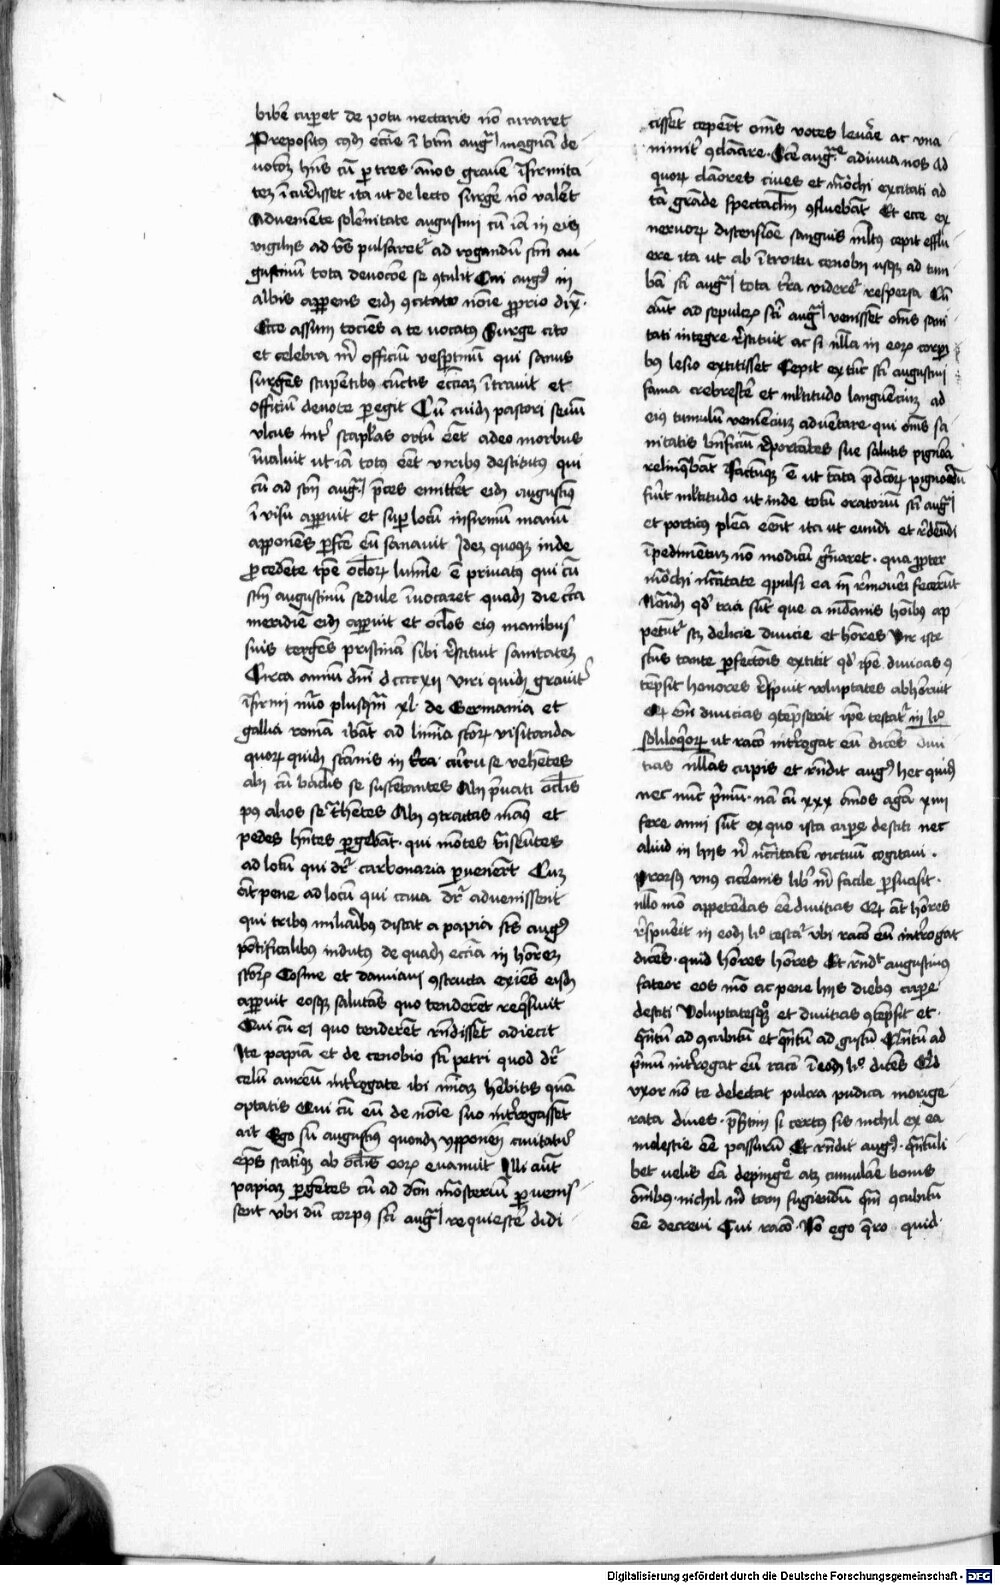 bibē cuperet de potu nectaris nō curaret
Prepositus cuiꝰdā eccīe ī btm̄ augꝰ magnam de
uocōez hn̄s cū per tres annos grauē ifirmita
tez īcurrisset ita ut de lecto surgere nō valeret
Adveniente solēnitate augustini cū iā in eiꝰ
vigiliis ad vs̄ pulsaretʳ ad rogandū stm̄ au
gustinum tota deuocōe se ꝯtulit Cui augꝰ in
albis apparens eidē ꝯcitato noīe proprio dix̄
Ecce assum tociens a te uocatus Surge cito
et celebra m̄ officiū vesptinū qui sanus
surgens stupentibꝰ cunctis ecciaȝ ītrauit et
officiū deuote peregit Cū cuidā pastori seuū
vlcus intʳ scapulas ortū eēt adeo morbus
īualuit ut iā totus eēt viribus destitutus qui
cū ad stm̄ augꝰ preces emitteret eidē augustinꝰ
ī visu apparuit et super locū infirmum manū
apponens perfcē eū sanauit Idez quoqꝫ inde
procedente tpe oclorꝫ lumīe ē priuatus qui cū
stm̄ augustinū sedule īuocaret quadā die circa
meridiē eidē apparuit et oclos eius manibus
suis tergens pristinā sibi restituit sanitatez
Circa annū dm̄i dccccxii viri quidā grauitʳ
īfirmi nūo plusqm̄ xl de Germania et
gallia romā ibāt ad limīa stōrꝫ visitanda
quorꝫ quidā scamnis in terra curuū se vehētes
alii cū baculis se sustentantes Alii priuati oclis
pꝰ alios se trahentes Alii ꝯtractas manꝰ et
pedes hn̄tes pergebāt qui mōtes trāseūtes
ad locū qui drʳ carbonaria peruenerūt Cuȝ
āt pene ad locū qui caua drʳ advenissent
qui tribus miliaribꝰ distat a papia stūs augꝰ
pōtificalibꝰ indutus de quadā eccīa in honorez
stōrꝫ Cosme et damiani ꝯstructa exiēs eisdē
apparuit eosqꝫ salutās quo tenderent reqsiuit
Qui cū ei quo tenderent rn̄dissēt adiecit
Ite papiā et de cenobio sti petri quod drʳ
celū aureū interrogate ibi nāqꝫ hēbitis quā
optatis Qui cū eū de noīe suo interrogassēt
ait Ego sū augustinꝰ quondā ypponeñ ciuitatis
ep̄s statimqꝫ ab oclis eorꝫ euanuit Illi autē
papiaz pergētes cū ad dcm̄ mōsteriū peruenis
sent vbi dū corpus sti augꝰ requiescere didi
cissēt ceperūt oms̄ voces leuare ac una
nimitʳ ꝯclamare Scē augꝰe adiuua nos ad
quorꝫ clamores ciues et mōchi excitati ad
tā grāde spectaclm̄ ꝯfluebāt Et ecce ex
neruorꝫ distensiōe sanguis mltꝰ cepit efflu
ere ita ut ab ītroitu cenobii usqꝫ ad tum
bā sti augꝰ tota terra videretʳ respersa Cū
autē ad sepulcrꝫ sti augꝰ venissēt oms̄ sani
tati integre restituit ac si nlla in eorꝫ corpi
bꝰ lesio extitisset Cepit ex tūc sti augustini
fama crebrescere et mltitudo languenciuȝ ad
eiꝰ tumulū venienciuȝ adventare qui oms̄ sa
nitatis bn̄ficiū reportantes sue salutis pignora
relinquebāt Factumqꝫ ē ut tāta predcōrꝫ pignorū
fieret mltitudo ut inde totū oratoriū sti augꝰ
et porticus plena eēnt ita ut eundi et redeundi
īpedimentuȝ nō modicū gn̄aret qua propter
mōchi necessitate ꝯpulsi ea īn remoueri fecerūt
Notandū qd tria sūt que a mūdanis homībꝰ ap
petūtʳ scȝ delicie diuicie et honores Vir iste
stūs tante perfectōis extitit qd ipe diuicias ꝯ
tēpsit honores respuit voluptates abhorruit
Qꝫ em̄ diuicias ꝯtēpserit ipe testatʳ in liº
soliloqōrꝫ ut racō interrogat eū dicēs Diui
cias nllas cupis et rn̄dit augꝰ hec quidē
nec nūc primū nā cū xxx annos agā xiiii
fere anni sūt ex quo ista cupere destiti nec
aliud in hiis nꝭ necessitatē victuū cogitaui
Prorsus vnus ciceronis liber m̄ facile persuasit
nllo mō appetendas eē diuitias Qꝫ āt honores
respuerit in eodē liº testatʳ vbi racō eū interrogat
dicēs quid hōres honores Et rn̄dit augustinus
fateor eos mō ac pene hiis diebus cupere
destiti Voluptatesqꝫ et diuitias ꝯtēpsit et
qntū ad ꝯcubitū et qntū ad gustū Quātū ad
primū interrogat eū racō ī eodē liº dicēs Quid
vxor nō te delectat pulcra pudica morige
rata diues presertim si certus sis nichil ex ea
molestie eē passurū Et rn̄dit augꝰ quantūli
bet uelis eā depingere atqꝫ cumulare bonis
omībus nichil m̄ tam fugiendū qm̄ ꝯcubitū
eē decreui Cui racō Nō ego quero quid
Digitalisierung gefördert durch die Deutsche Forschungsgemeinschaft - DFG